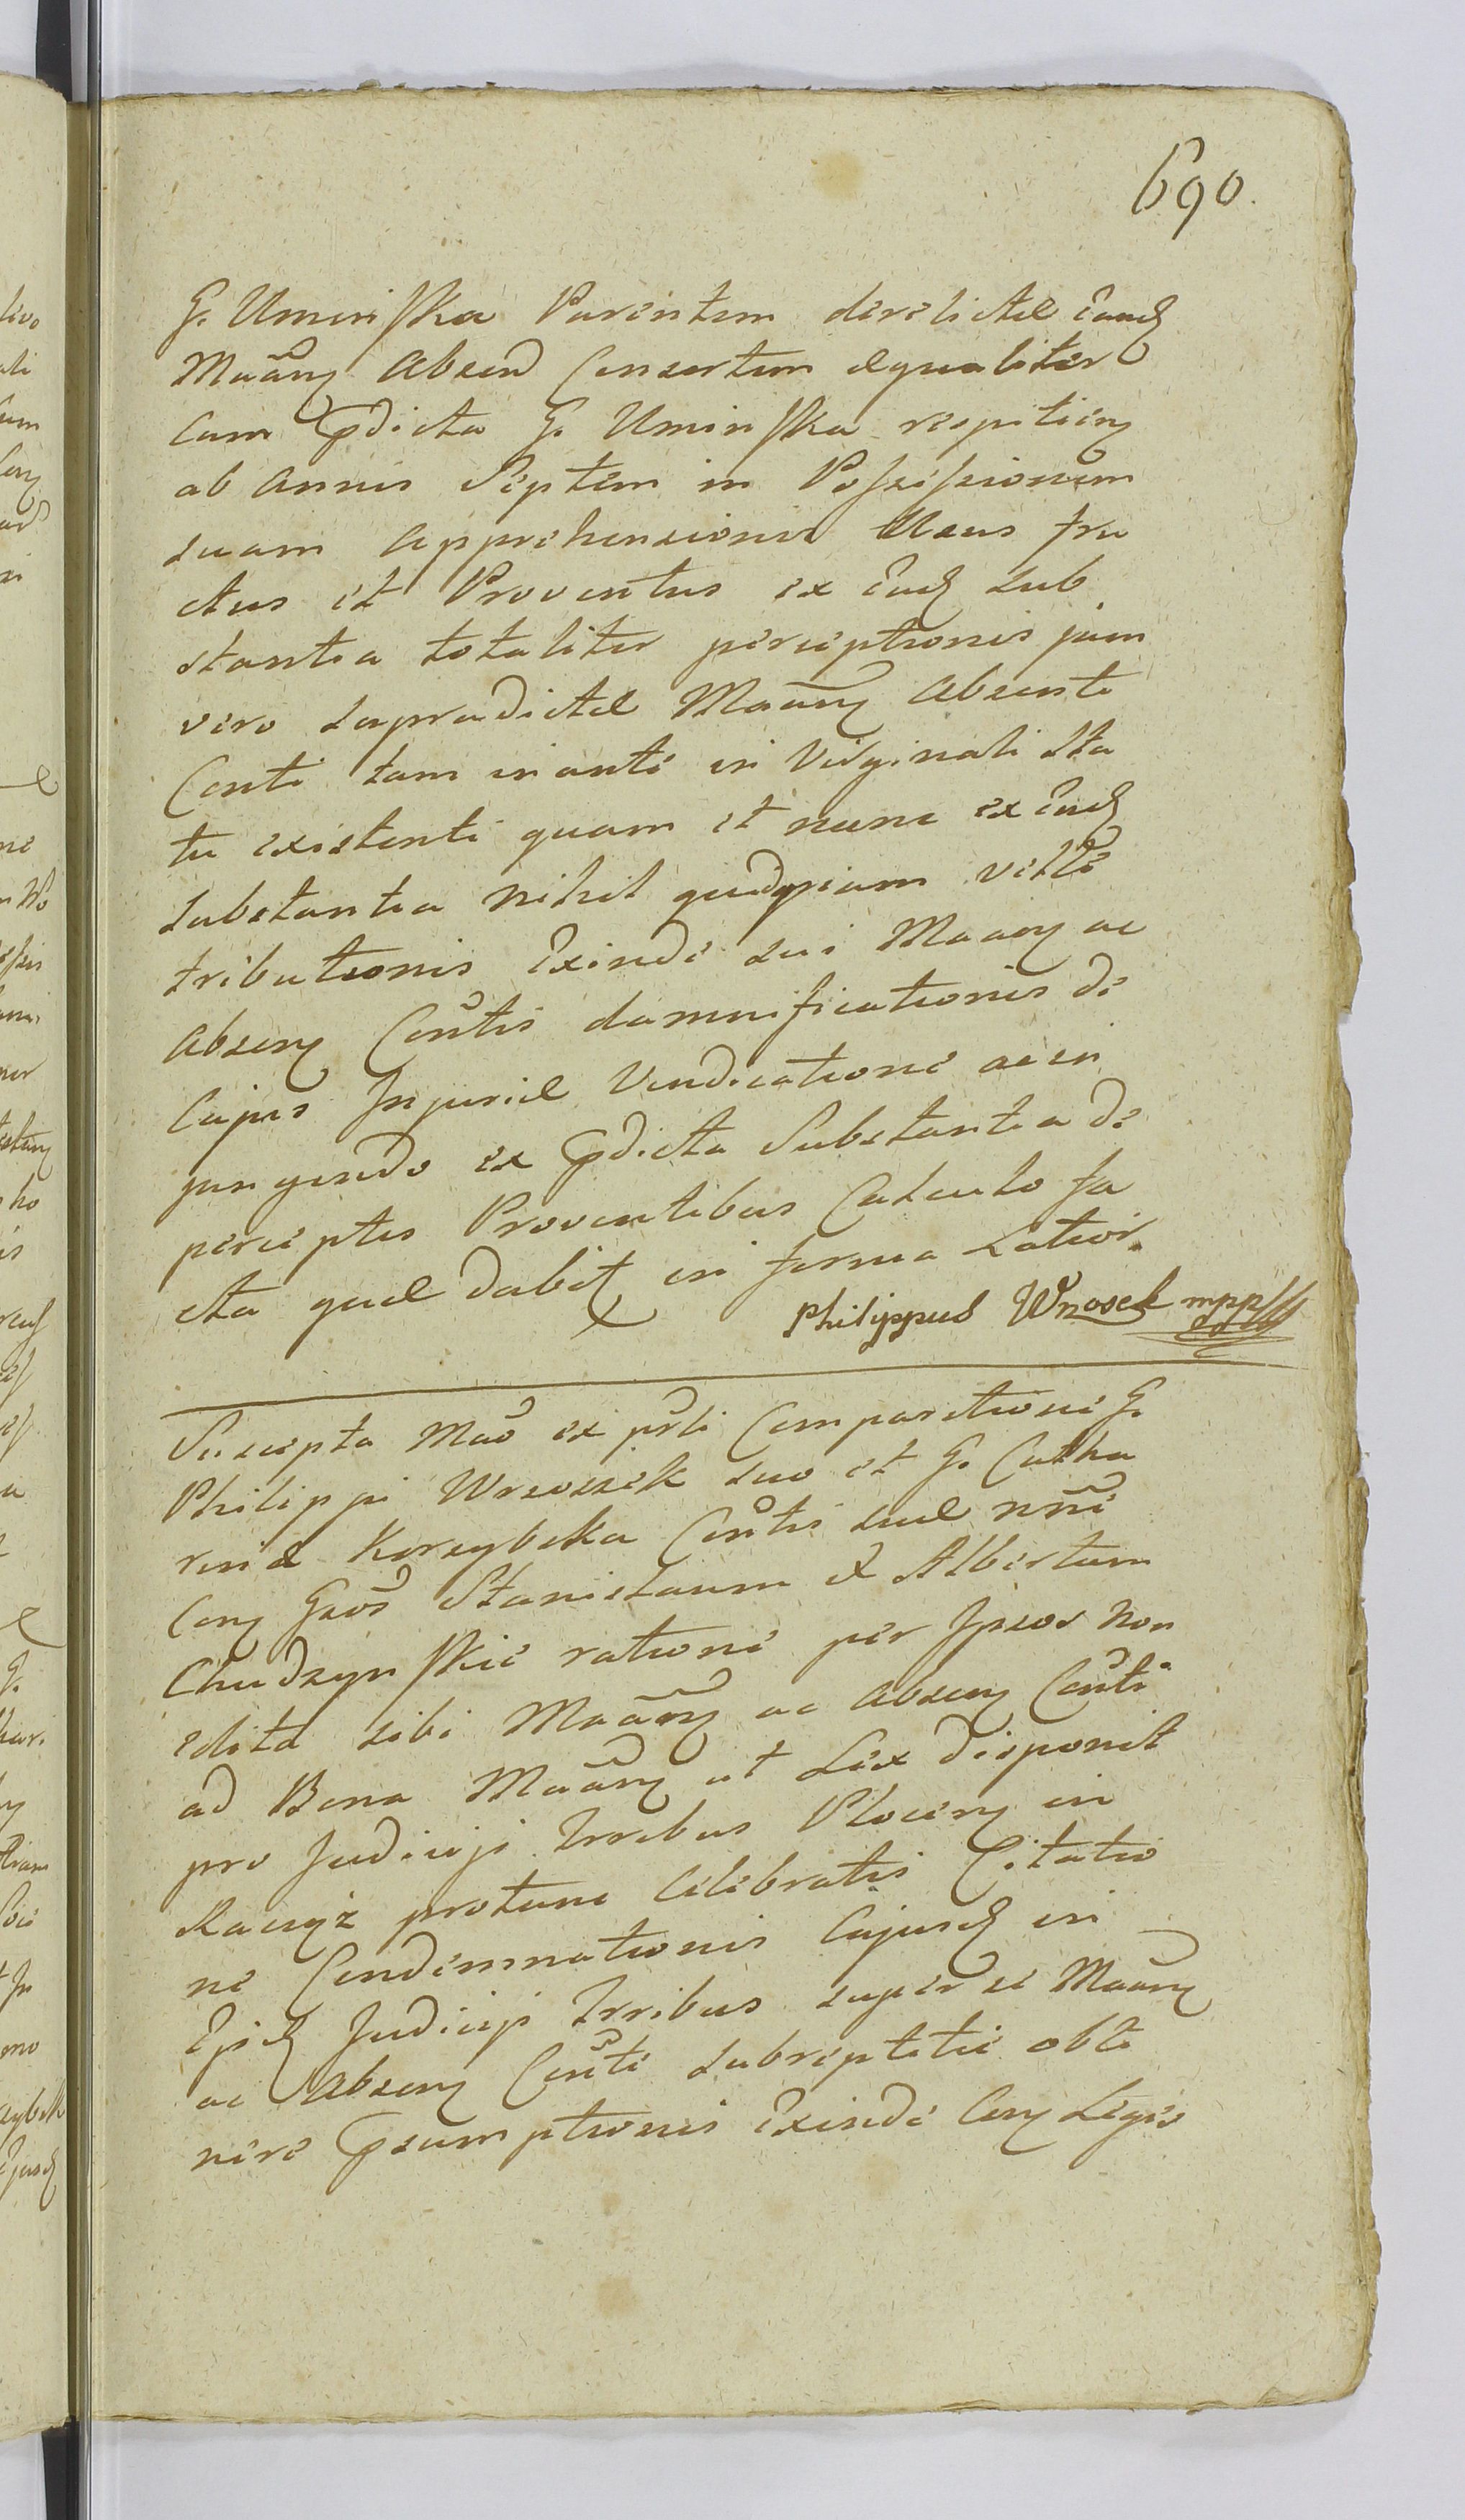 690.
G. Uminska Parentem derelictæ eand
Maãnŋ Absend Consortem æqualiter
cum Pdicta G. Uminska respicienŋ
ab annis Septem in Possessionem
suam Apprehensionis Usus fru
ctus et Proventus ex ead sub
stantia totaliter perceptionis jam
vero supradictæ Maãnŋ Absenti
Conti tam inante in Virginali Sta
tu existenti quam et nunc ex ead
Substantia nihil quidpiam velle
tributionis Exinde sui Maanŋ ac
Absenŋ Contis damnificationis de
Cujus Injuriæ Vendicatione ac in
jungendo ex Pdicta Substantia de
perceptis Proventibus Calculo fa
cta quæ dabit in forma Latior.
Philippus Wrzosek mpp
Suscepta Mão ex pñli Comparitione G.
Philippi Wrzosek suo et G. Catha
rinæ Korzybska Cõntis suæ nñe
Conŋ Gsos Stanislaum et Albertum
Chudzynskie ratione per Ipsos non
edita sibi Maãnŋ ac Absenŋ Cõnti
ad Bona Maãnŋ ut Lex disponit
pro Judicijs Trribus Plocenŋ in
Raciąz protunc Celebratis Citatio
ne Condemnationis Cujusd in
Ejsd Judicijs Trribus super se Maãnŋ
ac Absenŋ Cõnti subreptitie obti
nere Psumptionis Exinde Conŋ Leges